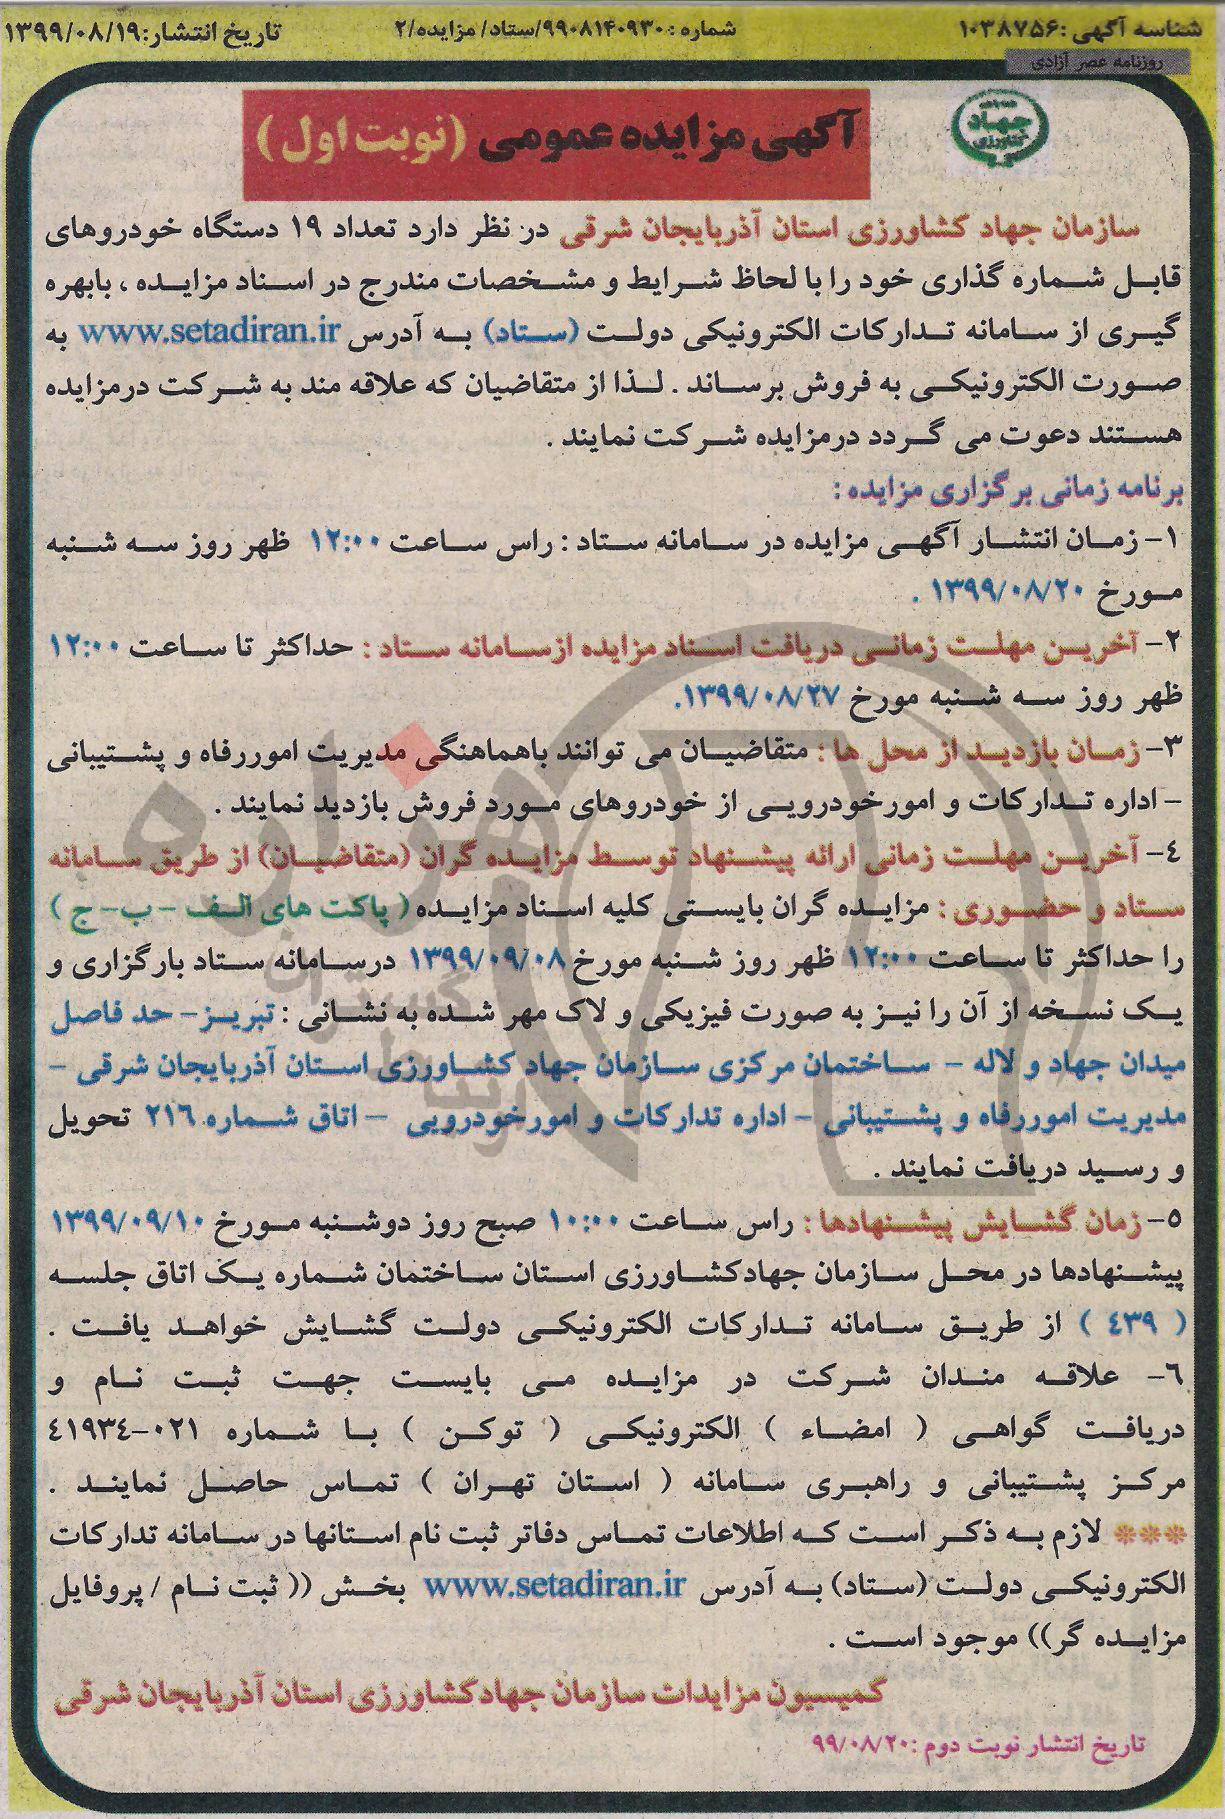 شناسه آگهی :۱۰۳۸۷۵۶
شماره :۹۹۰۸۱۴۰۹۳۰/ستاد/ مزایده/۲
تاریخ انتشار:۱۳۹۹/۰۸/۱۹
روزنامه عصر آزادی
جهاد
کشاورزی
آگهی مزایده عمومی (نوبت اول)
سازمان جهاد کشاورزی استان آذربایجان شرقی در نظر دارد تعداد ۱۹ دستگاه خودروهای
قابل شماره گذاری خود را با لحاظ شرایط و مشخصات مندرج در اسناد مزایده ، بابهره
گیری از سامانه تدارکات الکترونیکی دولت (ستاد) به آدرس www.setadiran.ir به
صورت الکترونیکی به فروش برساند . لذا از متقاضیان که علاقه مند به شرکت درمزایده
هستند دعوت می گردد درمزایده شرکت نمایند .
برنامه زمانی برگزاری مزایده :
۱- زمان انتشار آگهی مزایده در سامانه ستاد : راس ساعت ۱۲:۰۰ ظهر روز سه شنبه
مورخ ۱۳۹۹/۰۸/۲۰ .
۲- آخرین مهلت زمانی دریافت اسناد مزایده ازسامانه ستاد : حداکثر تا ساعت ۱۲:۰۰
ظهر روز سه شنبه مورخ ۱۳۹۹/۰۸/۲۷.
۳- زمان بازدید از محل ها : متقاضیان می توانند باهماهنگی مدیریت اموررفاه و پشتیبانی
- اداره تدارکات و امورخودرویی از خودروهای مورد فروش بازدید نمایند .
۴- آخرین مهلت زمانی ارائه پیشنهاد توسط مزایده گران (متقاضیان) از طریق سامانه
ستاد و حضوری : مزایده گران بایستی کلیه اسناد مزایده ( پاکت های الف - ب- ج )
را حداکثر تا ساعت ۱۲:۰۰ ظهر روز شنبه مورخ ۱۳۹۹/۰۹/۰۸ درسامانه ستاد بارگزاری و
یک نسخه از آن را نیز به صورت فیزیکی و لاک مهر شده به نشانی : تبریز- حد فاصل
میدان جهاد و لاله - ساختمان مرکزی سازمان جهاد کشاورزی استان آذربایجان شرقی -
مدیریت اموررفاه و پشتیبانی - اداره تدارکات و امورخودرویی - اتاق شماره ۲۱۶ تحویل
و رسید دریافت نمایند .
۵- زمان گشایش پیشنهادها : راس ساعت ۱۰:۰۰ صبح روز دوشنبه مورخ ۱۳۹۹/۰۹/۱۰
پیشنهادها در محل سازمان جهادکشاورزی استان ساختمان شماره یک اتاق جلسه
( ۴۳۹ ) از طریق سامانه تدارکات الکترونیکی دولت گشایش خواهد یافت .
۶- علاقه مندان شرکت در مزایده می بایست جهت ثبت نام و
دریافت گواهی ( امضاء ) الکترونیکی ( توکن ) با شماره ۰۲۱-۴۱۹۳۴
مرکز پشتیبانی و راهبری سامانه ( استان تهران ) تماس حاصل نمایند .
*** لازم به ذکر است که اطلاعات تماس دفاتر ثبت نام استانها در سامانه تدارکات
الکترونیکی دولت (ستاد) به آدرس www.setadiran.ir بخش (( ثبت نام / پروفایل
مزایده گر)) موجود است .
کمیسیون مزایدات سازمان جهادکشاورزی استان آذربایجان شرقی
تاریخ انتشار نوبت دوم :۹۹/۰۸/۲۰
هزاره